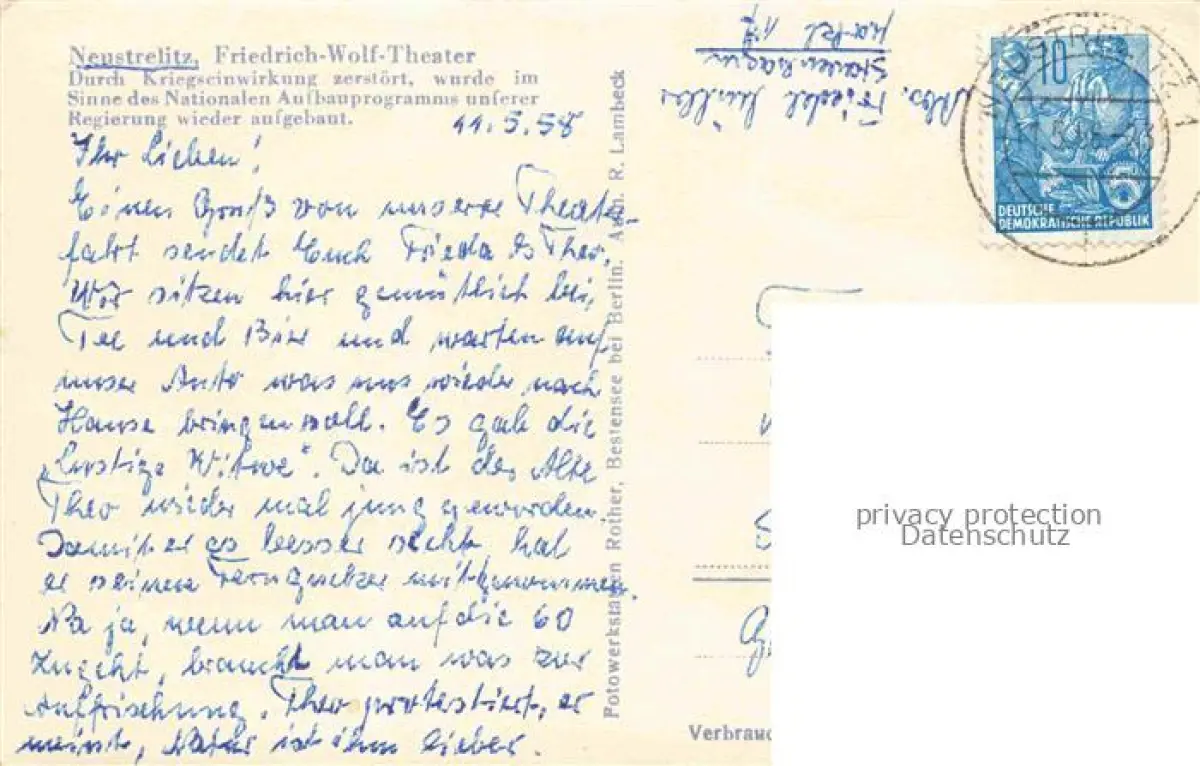 Neustrelitz, Friedrich-Wolf-Theater
Durch Kriegseinwirkung zerstört, wurde im
Sinne des Nationalen Aufbauprogramms unserer
Regierung wieder aufgebaut.
11.5.58
Ihr Lieben!
Einen Gruß von unserer Theater-
fahrt sendet Euch Frieda & Theo.
Wir sitzen hier gemütlich bei
Tee und Bier und warten auf
unser Auto was uns wieder nach
Hause bringen soll. Es gab die
"Lustige Witwe". Da ist der Alte
Theo wieder mal jung geworden.
Damit er es besser sieht, hat
er seinen Ferngucker mitgenommen.
Na ja, wenn man auf die 60
zugeht, braucht man was zur
Auffrischung. Theo protestiert, er
meint, Natur ist ihm lieber.
Fotowerkstätten Rother, Bestensee bei Berlin. Aufn. R. Lambeck
Abs. Friedel
Stavenhagen
Markt 17
NEUSTRELITZ 1
10
DEUTSCHE
DEMOKRATISCHE REPUBLIK
privacy protection
Datenschutz
Verbrauc